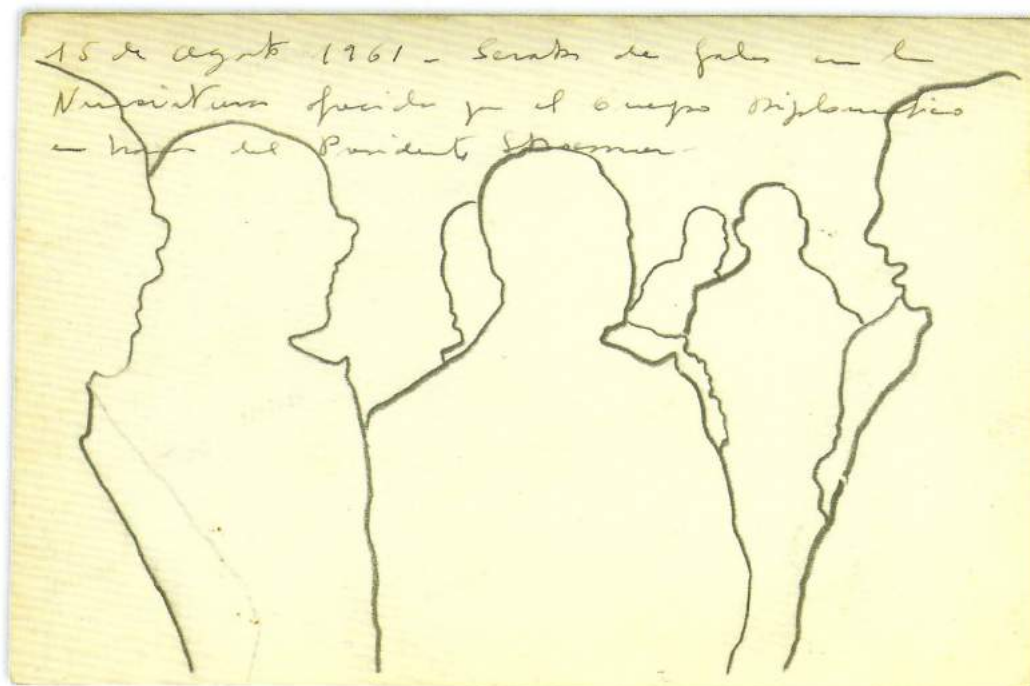 15 de Agosto 1961 - Serata de gala en la
Nunciatura ofrecida por el Cuerpo Diplomatico
en honor del Presidente Stroessner